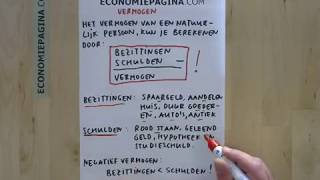 ECONOMIEPAGINA.COM
ECONOMIEPAGINA.COM
VERMOGEN
HET VERMOGEN VAN EEN NATUUR-
LIJK PERSOON, KUN JE BEREKENEN
DOOR:
BEZITTINGEN
SCHULDEN - !
VERMOGEN
BEZITTINGEN: SPAARGELD, AANDELEN
HUIS, DUUR GOEDER-
EN, AUTO'S, ANTIEK
SCHULDEN: ROOD STAAN, GELEEND
GELD, HYPOTHEEK EN
STUDIESCHULD.
NEGATIEF VERMOGEN:
BEZITTINGEN < SCHULDEN!